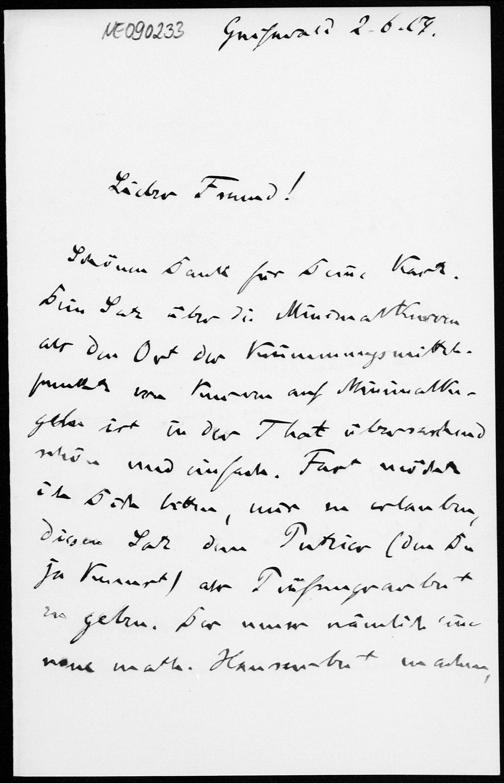 NE090233 Greifswald 2-6-17.
Lieber Freund!
Schönen Dank für Deine Karte.
Dein Satz über die Minimalkurven
als den Ort der Krümmungsmittel-
punkte von Kurven auf Minimalku-
geln ist in der That überraschend
schön und einfach. Fast möchte
ich Dich bitten, mir zu erlauben,
diesen Satz dem (den Du
ja kennst) als Prüfungsarbeit
zu geben. Der muss nämlich eine
neue math. Hausarbeit machen,